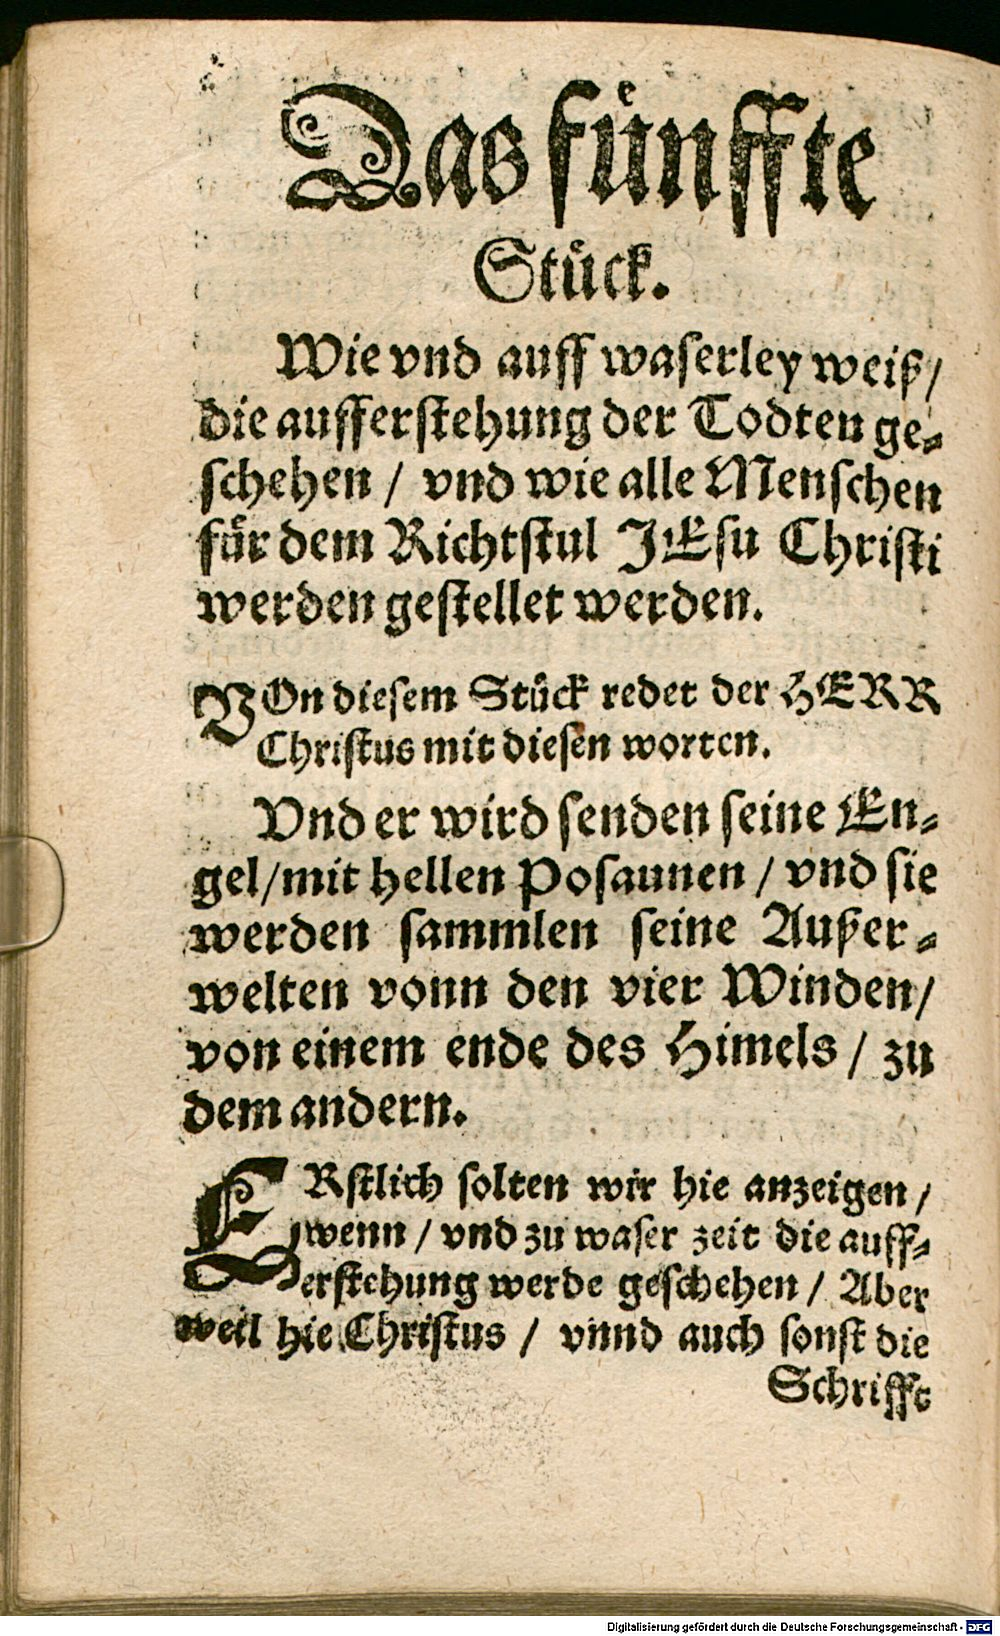 Das fuͤnffte
Stuͤck.
Wie vnd auff waserley weiß/
die aufferstehung der Todten ge⸗
schehen / vnd wie alle Menschen
fuͤr dem Richtstul JEsu Christi
werden gestellet werden.
VOn diesem Stuͤck redet der HERR
Christus mit diesen worten.
Vnd er wird senden seine En⸗
gel/mit hellen Posaunen / vnd sie
werden sammlen seine Außer⸗
welten vonn den vier Winden/
von einem ende des Himels / zu
dem andern.
ERstlich solten wir hie anzeigen /
wenn / vnd zu waser zeit die auff⸗
erstehung werde geschehen / Aber
weil hie Christus / vnnd auch sonst die
Schrifft
Digitalisierung gefördert durch die Deutsche Forschungsgemeinschaft - DFG